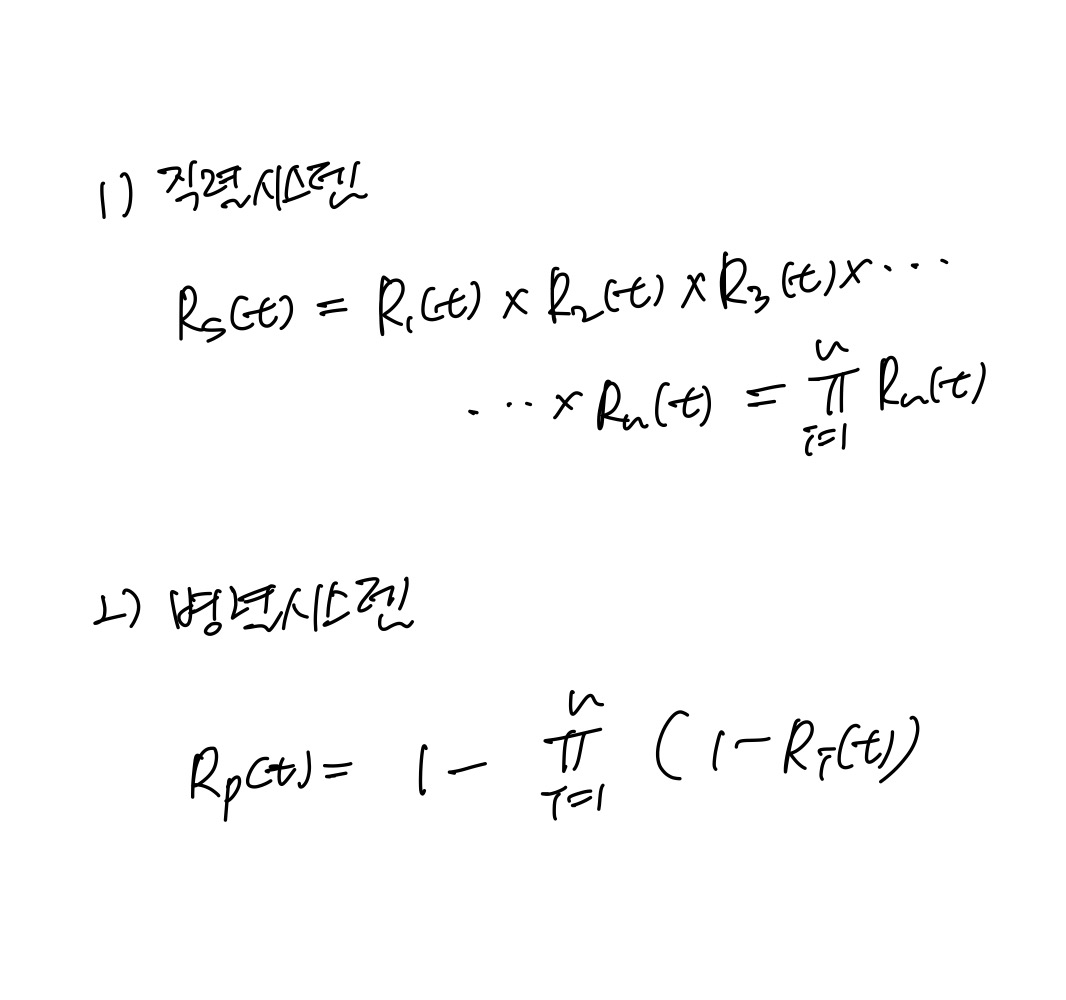 1) 직렬시스템
R_s(t) = R_1(t) × R_2(t) × R_3(t) × ···
··· × R_n(t) = ∏_{i=1}^{n} R_n(t)
2) 병렬시스템
R_p(t) = 1 - ∏_{i=1}^{n} (1 - R_i(t))